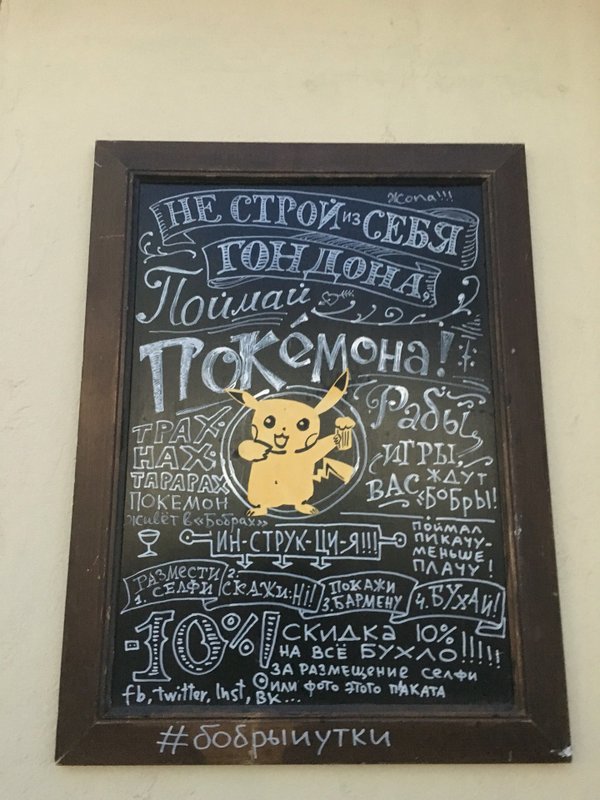 Жопа!!!
НЕ СТРОЙ ИЗ СЕБЯ
ГОНДОНА,
Поймай
ПОКéМОНА!
ТРАХ-
НАХ-
ТАРАРАХ
ПОКЕМОН
живёт в «Бобрах»
Рабы
ИГРЫ,
ВАС ЖДУТ
«БОБРЫ!
ИН-СТРУК-ЦИ-Я!!!
ПОЙМАЛ
ПИКАЧУ-
МЕНЬШЕ
ПЛАЧУ!
1. РАЗМЕСТИ СЕЛФИ
2. СКАЖИ: Hi!
3. ПОКАЖИ БАРМЕНУ
4. БУХАЙ!
-10%!
СКИДКА 10%
НА ВСЁ БУХЛО!!!!!
ЗА РАЗМЕЩЕНИЕ СЕЛФИ
ИЛИ ФОТО ЭТОГО ПЛАКАТА
fb, twitter, Inst, ВК...
#бобрыиутки